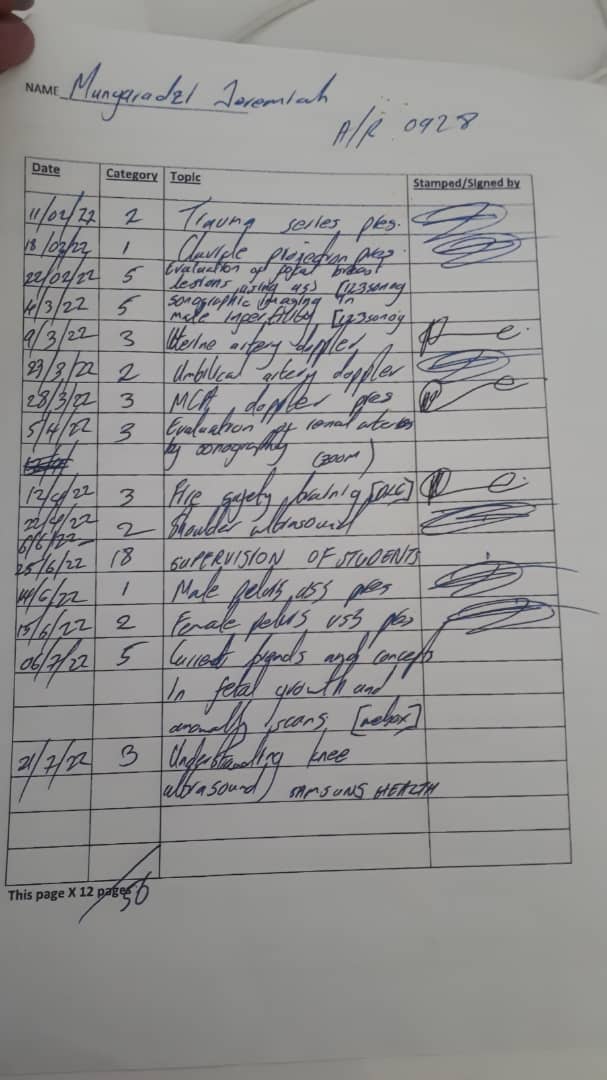 NAME Munyaradzi Jeremiah
A/R 0928
Date Category Topic Stamped/Signed by
11/02/22 2 Trauma series pres.
18/02/22 1 Clavicle projection pres.
22/02/22 5 Evaluation of focal breast
lesions using uss [123sonog
4/3/22 5 sonographic imaging in
male infertility [123sonog
9/3/22 3 Uterine artery doppler
23/3/22 2 Umbilical artery doppler
28/3/22 3 MCA doppler pres
5/4/22 3 Evaluation of renal arteries
by sonography (ZOOM)
12/4/22 3 Fire safety training
22/4/22 2 Shoulder ultrasound
6/6/22-
25/6/22 18 SUPERVISION OF STUDENTS
14/6/22 1 Male pelvis uss pres
15/6/22 2 Female pelvis uss pres
06/7/22 5 Current trends and concepts
In fetal growth and
anomally scans
21/7/22 3 Understanding knee
ultrasound) SAMSUNG HEALTH
This page X 12 pages 56